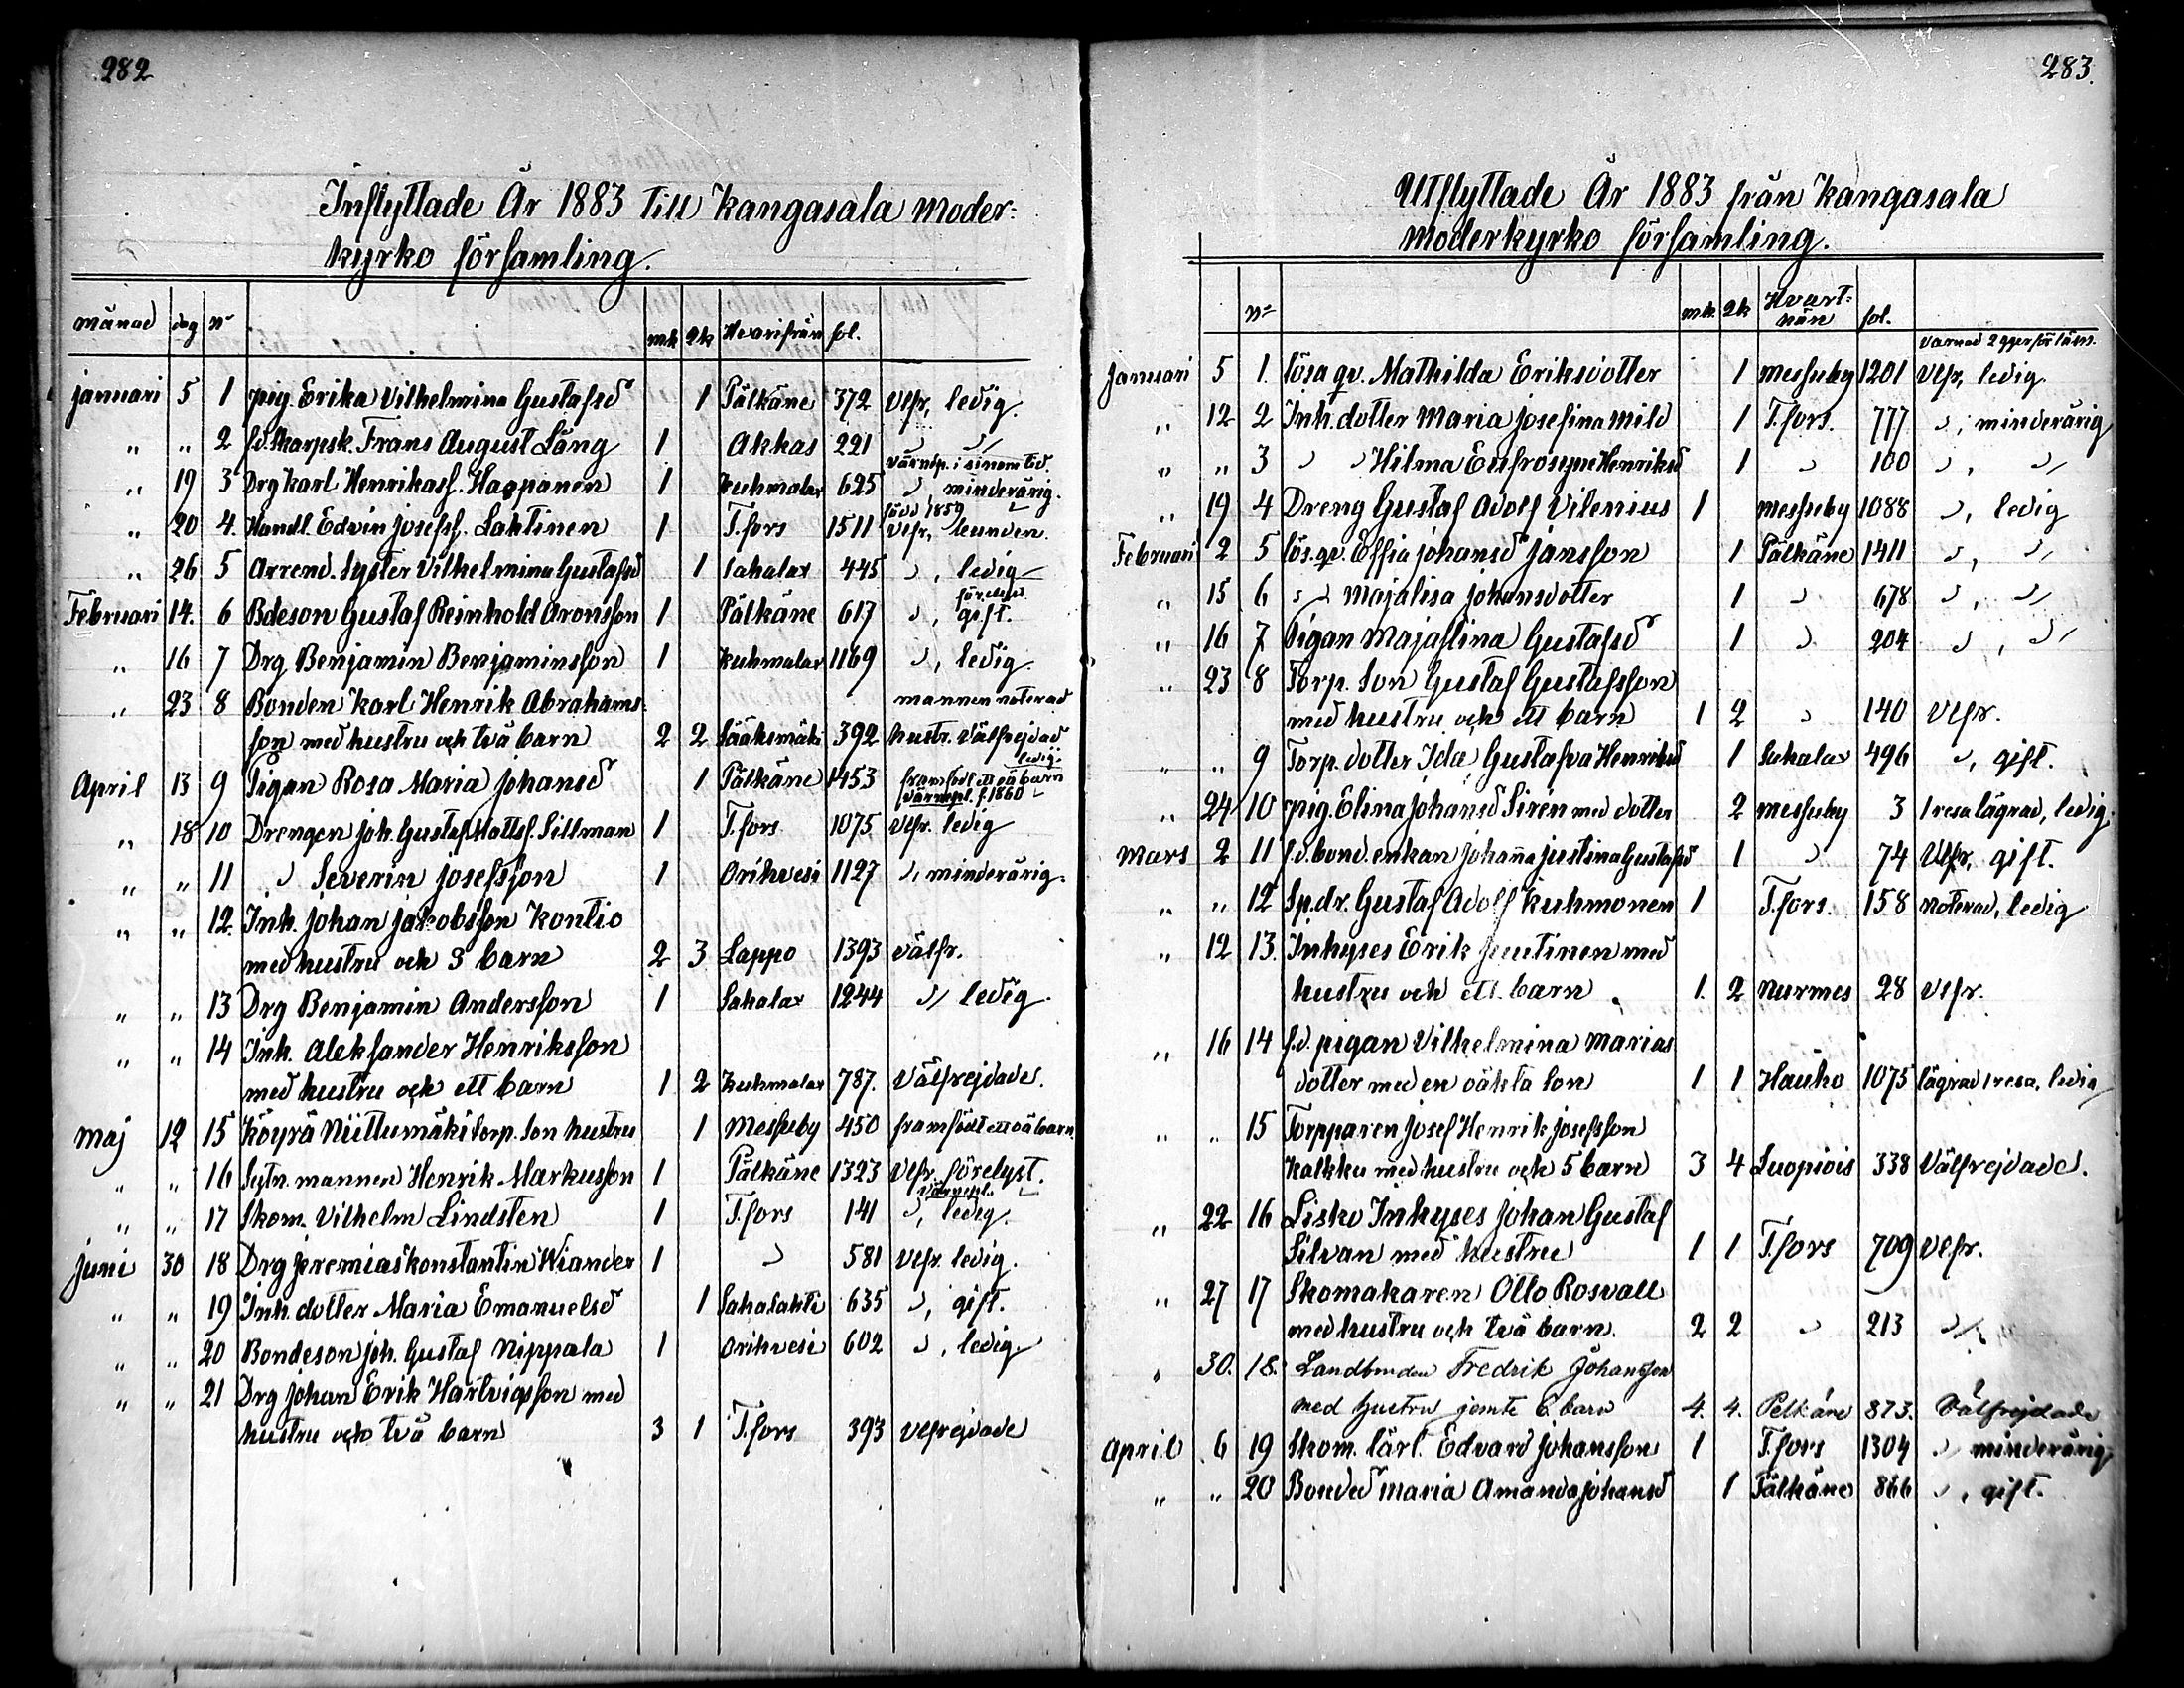 282
Inflyttade År 1883 till Kangasala moder-
kyrko församling.
månad dag No mk qk Hvarifrån fol.
januari 5 1 pig. Erika Vilhelmina Gustafsd 1 Pälkäne 372 Vlfr, ledig.
„ „ 2 f.d. skarpsk. Frans August Lång 1 Akkas 221 " "
värnep. i sinom tid.
„ 19 3 Drg Karl Henrikass. Happanen 1 Kuhmalax 625 ", minderårig.
född 1859
„ 20 4. Handl. Edvin Josefss. Lahtinen 1 T.fors 1511 Vlfr,
„ 26 5 Arrend. syster Vilhelmina Gustafsd 1 Sahalax 445 ", ledig
Februari 14. 6 Bdeson Gustaf Reinhold Aronsson 1 Pälkäne 617 ", gift.
„ 16 7 Drg Benjamin Benjaminsson 1 Kuhmalax 1169 ", ledig
„ 23 8 Bonden Karl Henrik Abrahams- mannen noterad
son med hustru och två barn 2 2 Sääksmäki 392 hustr. välfrejdad
ledig.
April 13 9 Pigan Rosa Maria Johansd 1 Pälkäne 1453 framfödt ett oä barn
värnepl. f. 1860
„ 18 10 Drengen Joh. Gustaf Mattss. Sillman 1 T.fors 1075 Vlfr. ledig
„ „ 11 " Severin Josefsson 1 Orihvesi 1127 ", minderårig.
„ „ 12. Inh. Johan Jakobsson Kontio
med hustru och 3 barn 2 3 Lappo 1393 välfr.
„ „ 13 Drg Benjamin Andersson 1 Sahalax 1244 ", ledig.
„ „ 14 Inh. Aleksander Henriksson
med hustru och ett barn 1 2 Kuhmalax 787. Välfrejdade.
Maj 12 15 Köyrä Niittumäki torp. son hustru 1 Messuby 450 framfödt ett oä barn.
„ „ 16 Sytn. mannen Henrik Markusson 1 Pälkäne 1323 Vlfr. förelyst.
värnepl.
„ „ 17 Skom. Vilhelm Lindsten 1 T.fors 141 ", ledig.
Juni 30 18 Drg Jeremias Konstantin Wiander 1 " 581 Vlfr. ledig.
„ „ 19 Inh. dotter Maria Emanuelsd 1 Sahalahti 635 ", gift.
„ „ 20 Bondeson Joh. Gustaf Nippala 1 Orihvesi 602 ", ledig.
„ „ 21 Drg Johan Erik Hartvigsson med
hustru och två barn 3 1 T.fors 393 Vlfrejdade
283.
Utflyttade År 1883 från Kangasala
moderkyrko församling.
No mk. qk Hvart-
hän fol.
varnad 2 ggr för läsn.
Januari 5 1. lösa qv. Mathilda Eriksdotter 1 Messuby 1201 Vlfr, ledig.
„ 12 2 Inh. dotter Maria Josefina Mild 1 T.fors. 777 ", minderårig
„ „ 3 " " Hilma Eufrosyne Henriksd 1 " 100 ", "
„ 19 4 Dreng Gustaf Adolf Vilenius 1 Messuby 1088 ", ledig
Februari 2 5 lös. qv. Effia Johansd Jansson 1 Pälkäne 1411 ", "
„ 15 6 " " Majalisa Johansdotter 1 " 678 ", "
„ 16 7 Pigan Majastina Gustafsd 1 " 204 ", "
„ 23 8 Torp. son Gustaf Gustafsson
med hustru och ett barn 1 2 " 140 Vlfr.
„ „ 9 Torp. dotter Ida Gustafva Henriksd 1 Sahalax 496 ", gift.
„ 24 10 pig. Elina Johansd Sirén med dotter 2 Messuby 3 1 resa lägrad, ledig.
Mars 2 11 f.d. bond. enkan Johanna Justina Gustafsd 1 " 74 Vlfr, gift.
„ „ 12 Sp.dr. Gustaf Adolf Kuhmonen 1 T.fors. 158 noterad, ledig
„ 12 13. Inhyses Erik Juutinen med
hustru och ett barn 1. 2 Nurmes 28 Vlfr.
„ 16 14 f.d. pigan Vilhelmina Marias
dotter med en oäkta son 1 1 Hauho 1075 lägrad 1 resa, ledig
„ „ 15 Torpparen Josef Henrik Josefsson
Kalkku med hustru och 5 barn 3 4 Luopiois 338 Välfrejdade.
„ 22 16 Lisko Inhyses Johan Gustaf
Silvan med hustru 1 1 T.fors 709 Vlfr.
„ 27 17 Skomakaren Otto Rosvall
med hustru och två barn. 2 2 " 213 "
„ 30. 18. Landbonden Fredrik Johansson
med hustru jemte 6 barn 4. 4. Pelkäne 873. Välfrejdade
April 6 19 Skom. lärl. Edvard Johansson 1 T.fors 1304 " minderårig
„ „ 20 Bonded Maria Amanda Johansd 1 Pälkäne 866 ", gift.